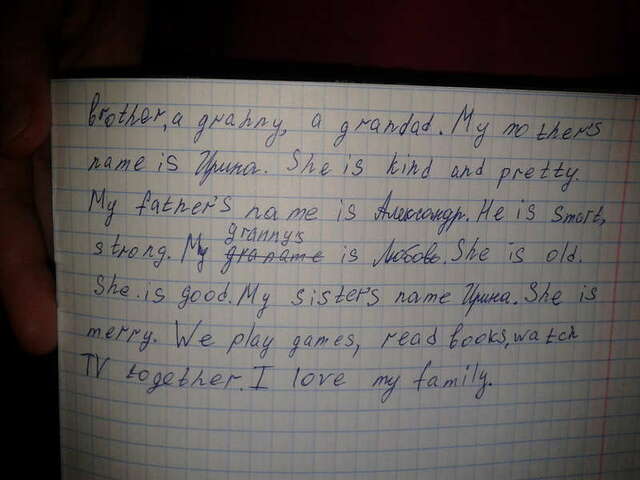 brother, a granny, a grandad. My mothers
name is Ирина. She is kind and pretty.
My father's name is Александр. He is smart,
grannys
strong. My graname is Любовь. She is old.
She is good. My sisters name Ирина. She is
merry. We play games, read books, watch
TV together. I love my family.